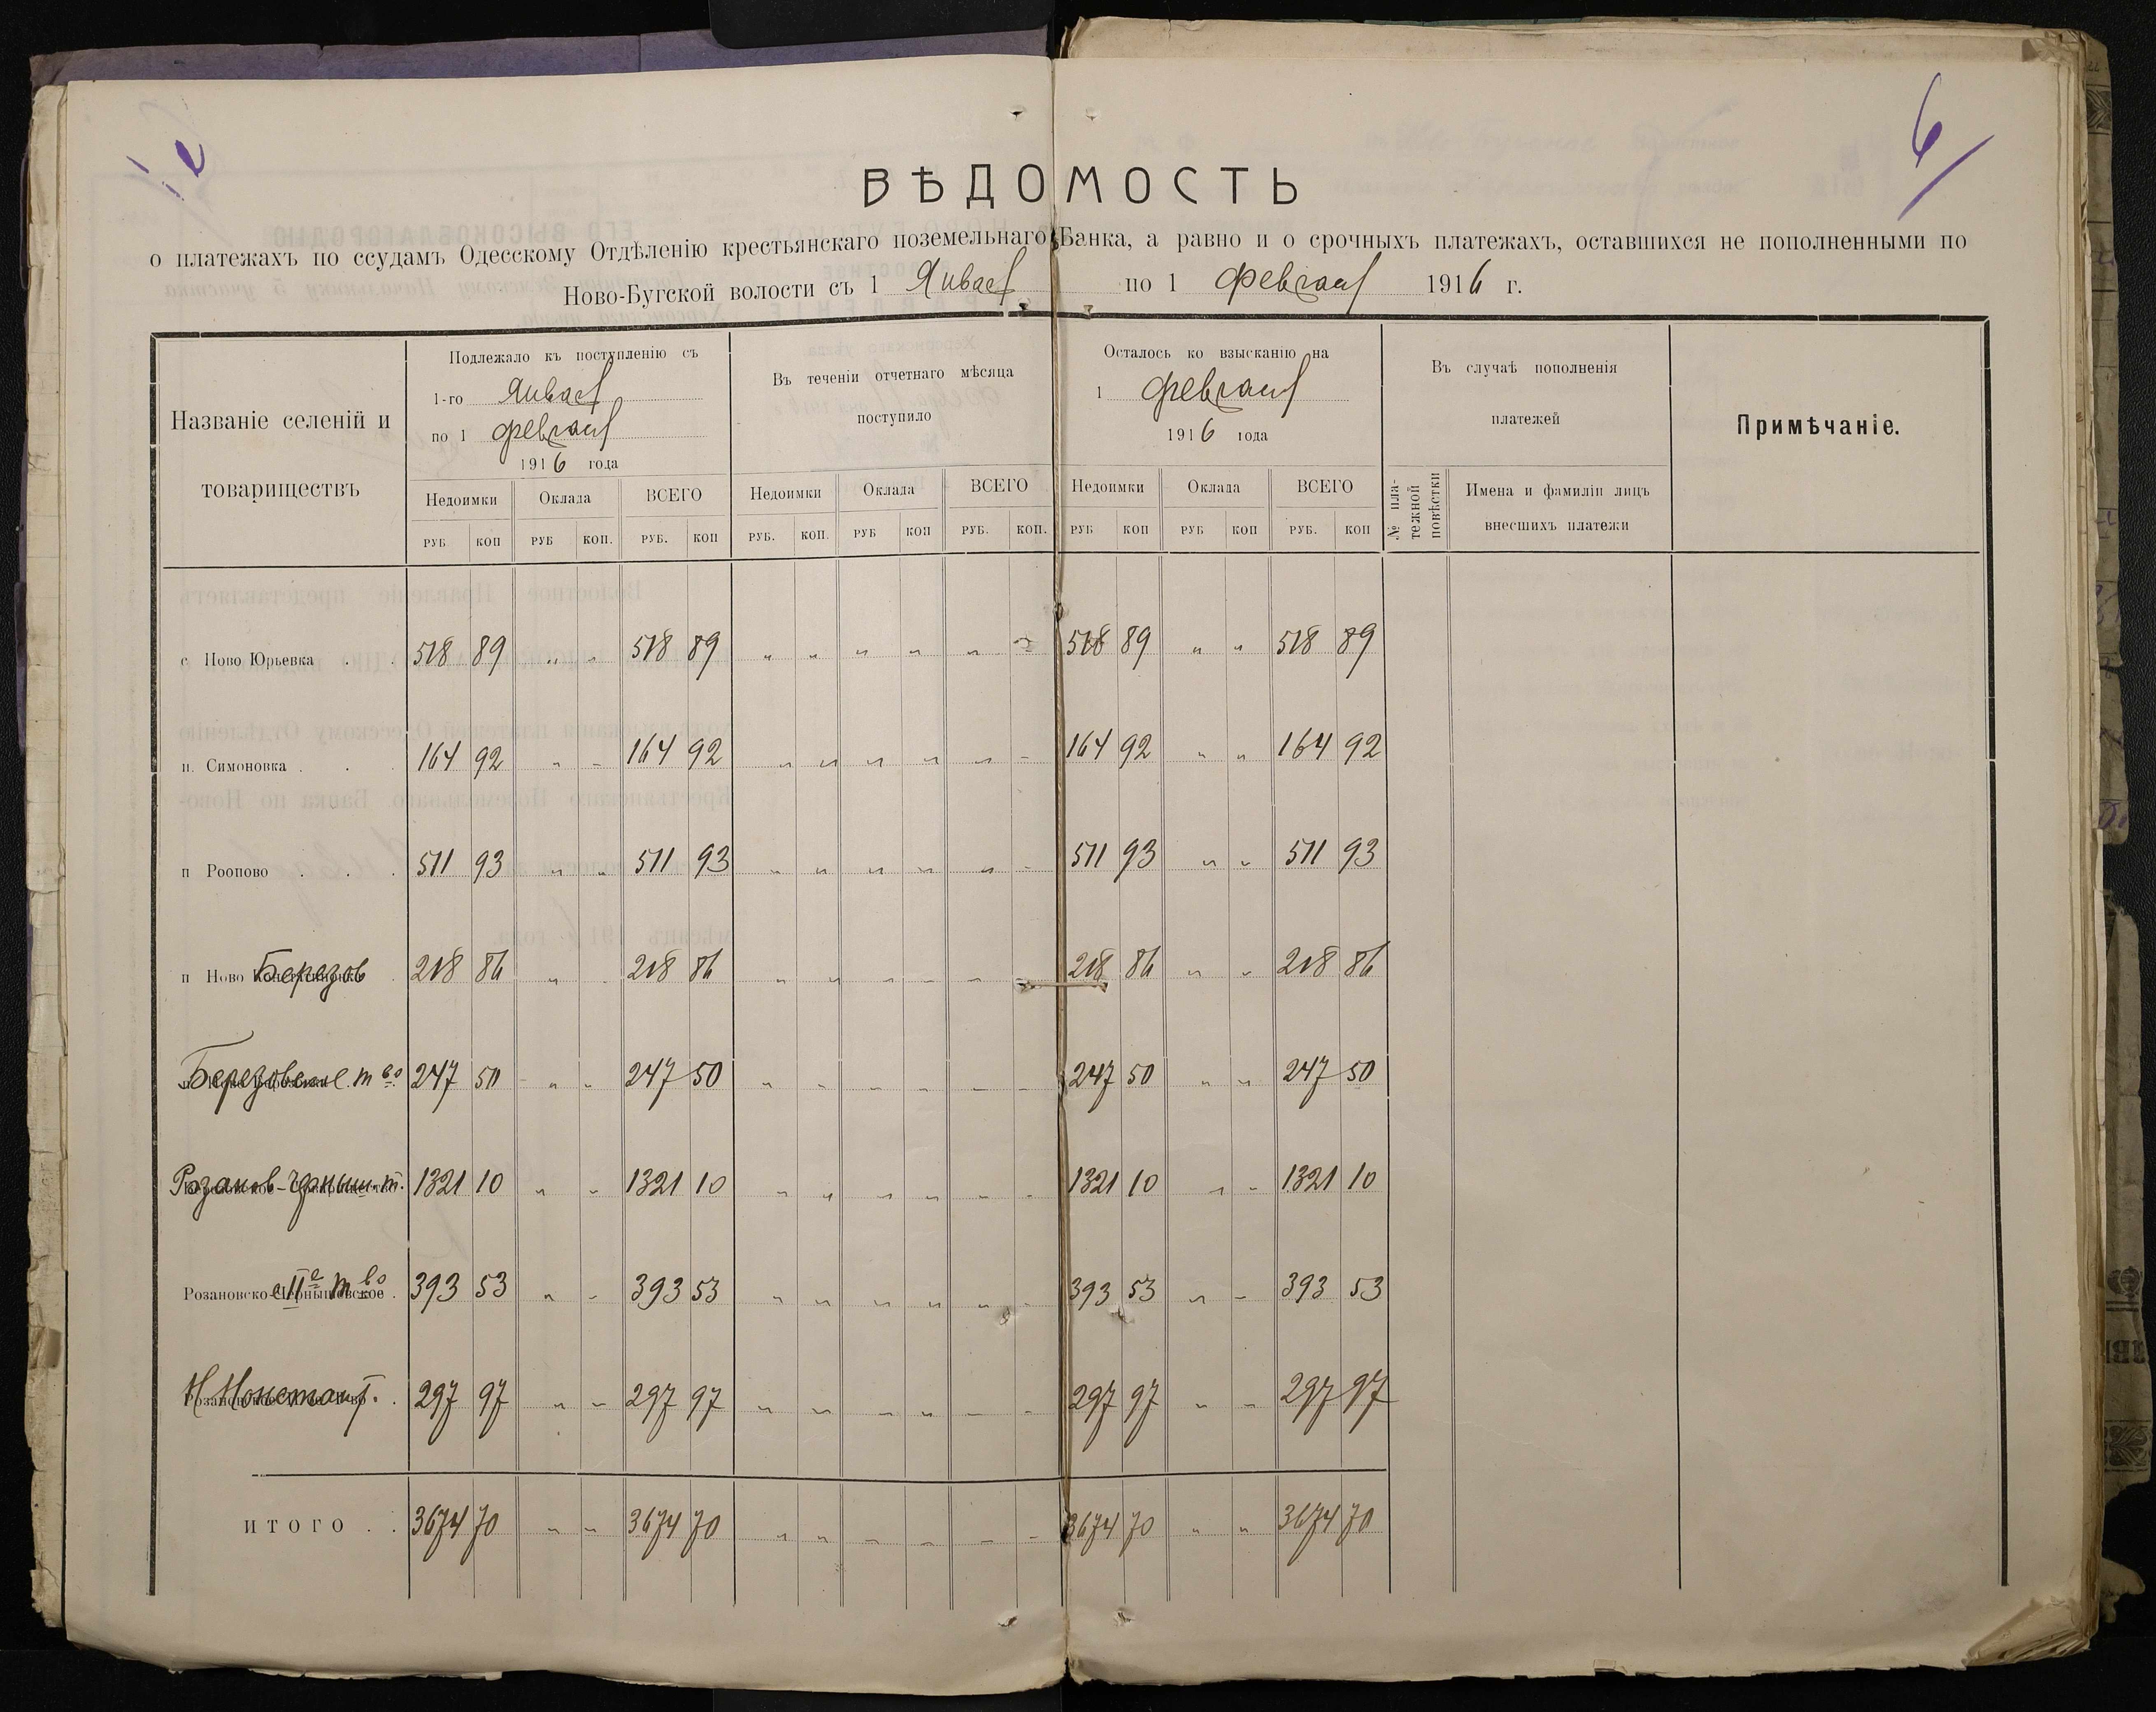 6
ВѢДОМОСТЬ
о платежахъ по ссудамъ Одесскому Отдѣленію крестьянскаго поземельнаго Банка, а равно и о срочныхъ платежахъ, оставшихся не пополненными по
Ново-Бугской волости съ 1 Января по 1 Февраля 1916 г.
Названіе селеній и товариществъ
Подлежало къ поступленію съ
1-го Января
по 1 Февраля
1916 года
Въ теченіи отчетнаго мѣсяца
поступило
Осталось ко взысканію на
1 Февраля
1916 года
Въ случаѣ пополненія
платежей
Примѣчаніе.
Недоимки Оклада ВСЕГО Недоимки Оклада ВСЕГО Недоимки Оклада ВСЕГО
№ пла-
тежной
повѣстки
Имена и фамиліи лицъ
внесшихъ платежи
РУБ КОП РУБ КОП. РУБ. КОП РУБ. КОП. РУБ КОП РУБ. КОП. РУБ КОП РУБ КОП РУБ. КОП
с Ново Юрьевка . . 518 89 " " 518 89 " " " " " " 518 89 " " 518 89
п. Симоновка . . . 164 92 " " 164 92 " " " " " " 164 92 " " 164 92
п Роопово . . . 511 93 " " 511 93 " " " " " " 511 93 " " 511 93
п Ново Березов 218 86 " " 218 86 " " " " " " 218 86 " " 218 86
Березовское т во 247 50 " " 247 50 " " " " " " 247 50 " " 247 50
Розанов-Черныш. т. 1321 10 " " 1321 10 " " " " " " 1321 10 " " 1321 10
Розановско-Чернышевское II е т во 393 53 " " 393 53 " " " " " " 393 53 " " 393 53
Н Констант. 297 97 " " 297 97 " " " " " " 297 97 " " 297 97
ИТОГО . . 3674 70 " " 3674 70 " " " " " " 3674 70 " " 3674 70